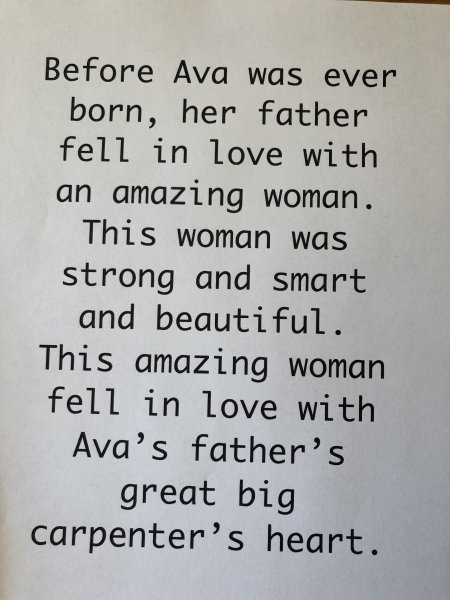 Before Ava was ever
born, her father
fell in love with
an amazing woman.
This woman was
strong and smart
and beautiful.
This amazing woman
fell in love with
Ava’s father’s
great big
carpenter’s heart.